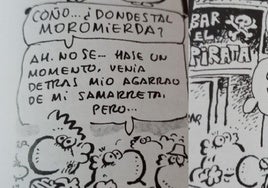 COÑO... ¿DONDESTAL
MOROMIERDA?
AH. NO SE... HASE UN
MOMENTO, VENIA
DETRAS MIO AGARRAO
DE MI SAMARRETA.
PERO...
BAR
EL
PIRATA
BAR